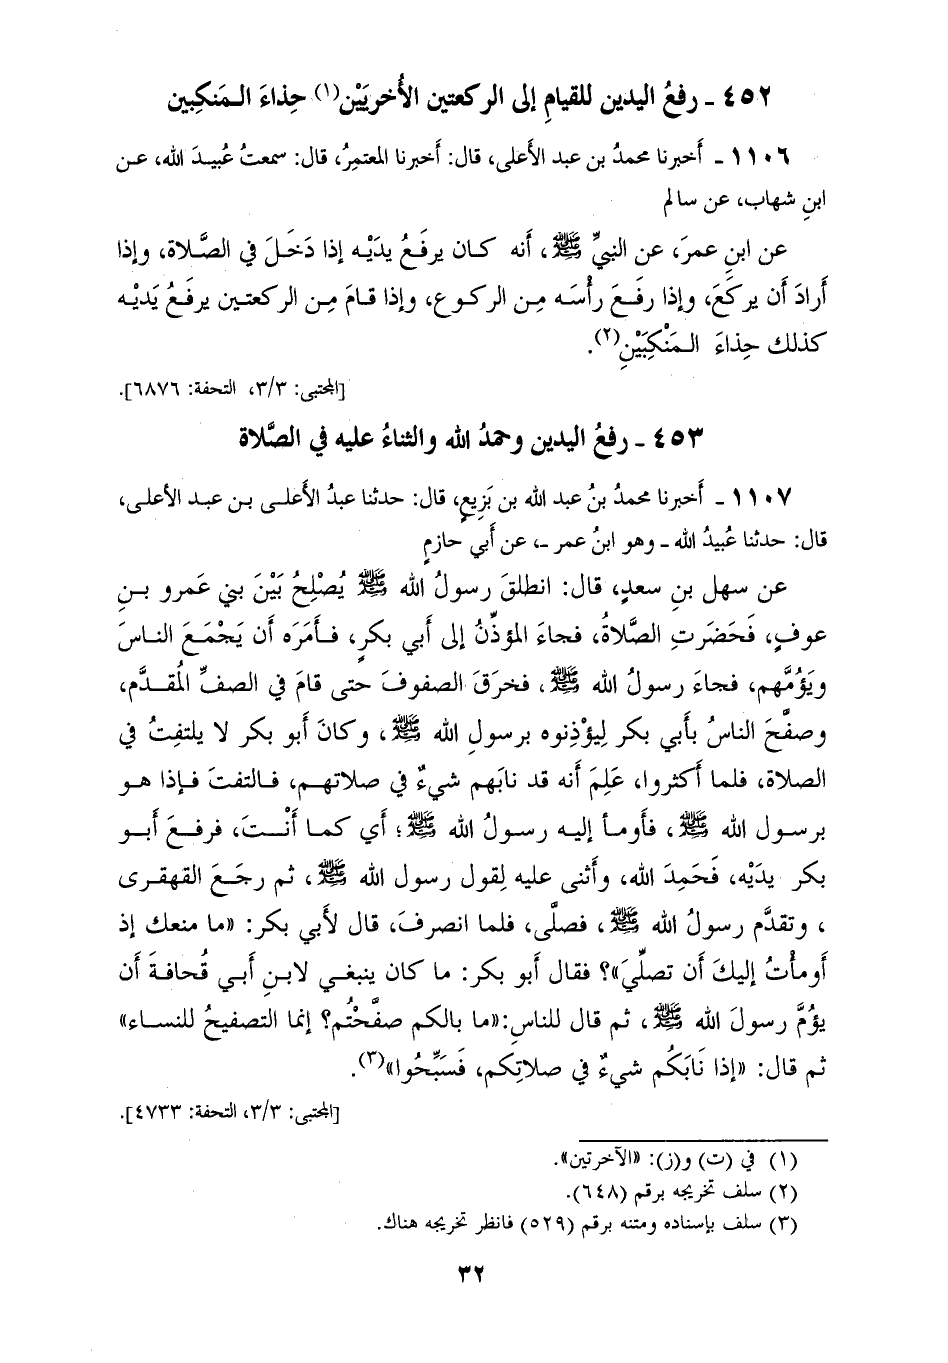 ٤٥٢ ـ رفعُ اليدين للقيامِ إلى الركعتين الأُخريَيْن(١) حِذاءَ الـمَنكِبين
١١٠٦ ـ أخبرنا محمدُ بن عبد الأعلى، قال: أخبرنا المعتمرُ، قال: سمعتُ عُبيدَ الله، عن
ابنِ شهاب، عن سالم
عن ابنِ عمرَ، عن النبيِّ ﷺ، أنه كان يرفَعُ يدَيْه إذا دَخَلَ في الصَّلاة، وإذا
أرادَ أن يركَعَ، وإذا رفَعَ رأْسَه مِن الركوع، وإذا قامَ مِن الركعتين يرفَعُ يَديْه
كذلك حِذاءَ الـمَنْكِبَيْنِ(٢).
[المجتبى: ٣/٣، التحفة: ٦٨٧٦].
٤٥٣ ـ رفعُ اليدين وحمدُ الله والثناءُ عليه في الصَّلاة
١١٠٧ ـ أخبرنا محمدُ بنُ عبد الله بن بَزِيعٍ، قال: حدثنا عبدُ الأعلى بن عبد الأعلى،
قال: حدثنا عُبيدُ الله ـ وهو ابنُ عمر ـ، عن أبي حازمٍ
عن سهل بنِ سعدٍ، قال: انطلقَ رسولُ الله ﷺ يُصْلِحُ بَيْنَ بني عَمرو بنِ
عوفٍ، فَحَضَرَتِ الصَّلاةُ، فجاءَ المؤذِّنُ إلى أبي بكرٍ، فأمَرَه أن يَجْمَعَ الناسَ
ويَؤُمَّهم، فجاءَ رسولُ الله ﷺ، فخرَقَ الصفوفَ حتى قامَ في الصفِّ المُقدَّم،
وصفَّحَ الناسُ بأبي بكر لِيؤْذِنوه برسولِ الله ﷺ، وكانَ أبو بكر لا يلتفِتُ في
الصلاة، فلما أكثروا، عَلِمَ أنه قد نابَهم شيءٌ في صلاتهم، فالتفتَ فإذا هو
برسول الله ﷺ، فأومأ إليه رسولُ الله ﷺ؛ أي كما أنْتَ، فرفعَ أبو
بكر يدَيْه، فَحَمِدَ الله، وأثنى عليه لِقول رسول الله ﷺ، ثم رجَعَ القهقرى
، وتقدَّم رسولُ الله ﷺ، فصلَّى، فلما انصرفَ، قال لأبي بكر: «ما منعك إذ
أومأْتُ إليكَ أن تصلِّيَ»؟ فقال أبو بكر: ما كان ينبغي لابنِ أبي قُحافةَ أن
يؤُمَّ رسولَ الله ﷺ، ثم قال للناسِ:«ما بالكم صفَّحْتُم؟ إنما التصفيحُ للنساء»
ثم قال: «إذا نَابَكُم شيءٌ في صلاتِكم، فَسَبِّحُوا»(٣).
[المجتبى: ٣/٣، التحفة: ٤٧٣٣].
(١) في (ت) و(ز): «الآخرتين».
(٢) سلف تخريجه برقم (٦٤٨).
(٣) سلف بإسناده ومتنه برقم (٥٢٩) فانظر تخريجه هناك.
٣٢